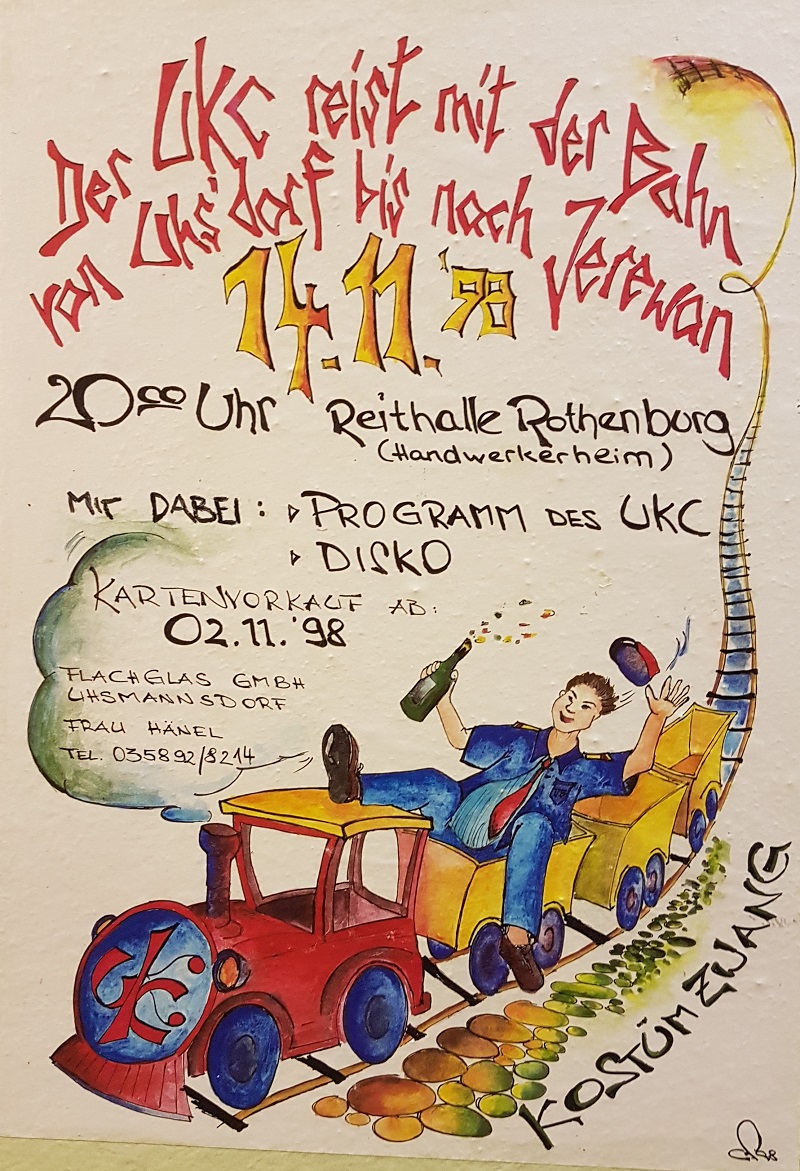 Der UKC reist mit der Bahn
von Uhs'dorf bis nach Jerewan
14.11.'98
20⁰⁰ Uhr Reithalle Rothenburg
(Handwerkerheim)
MIT DABEI: ▹ PROGRAMM DES UKC
▹ DISKO
KARTENVORKAUF AB:
02.11.'98
FLACHGLAS GMBH
UHSMANNSDORF
FRAU HÄNEL
TEL. 035892/8214
UKC
KOSTÜMZWANG